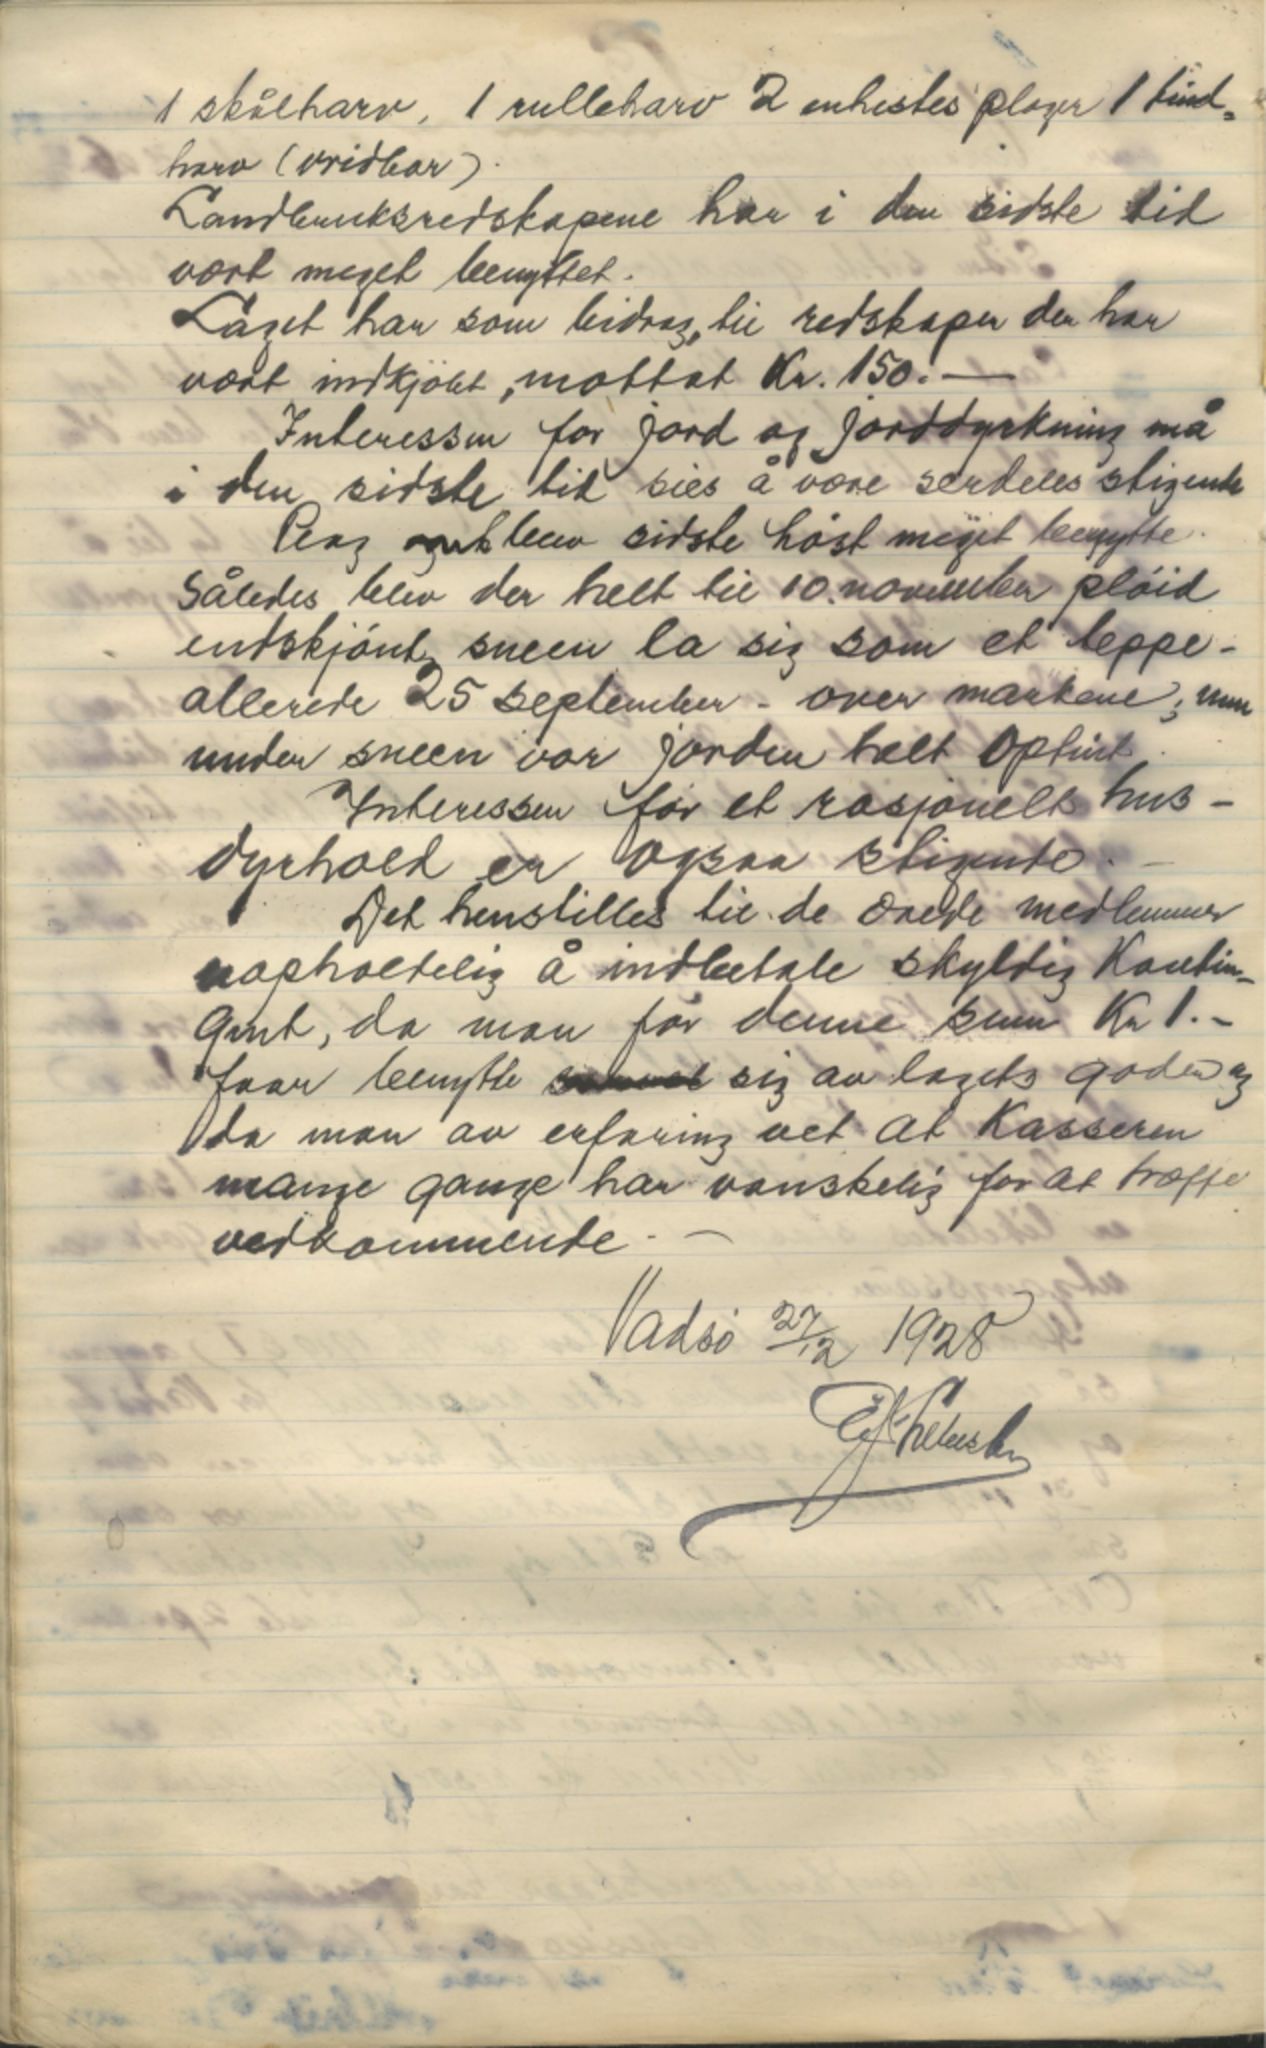 1 skålharv, 1 rulleharv 2 enhestes ploger 1 tind=
harv (vridbar).
Landbruksredskapene har i den sidste tid
vært meget benyttet.
Laget har som bidrag, til redskaper der har
vært indkjöbt, mottat Kr. 150.—
Interessen for jord og jorddyrkning må
i den sidste tid sies å være serdeles stigende
Plog blev sidste höst meget benytte.
Således blev der helt til 10. november plöid
endskjönt sneen la sig som et teppe-
allerede 25 september - over markene; men
under sneen var jorden helt optint.
Interessen for et rasjonelt hus-
dyrhold er ogsaa stigende. —
Det henstilles til de ærede medlemmer
uopholdelig å indbetale skyldig Kontin-
gent, da man for denne sum Kr 1.-
faar benytte sig av lagets goder og
da man av erfaring vet at Kasseren
mange gange har vanskelig for at træffe
vedkommende. —
Vadsö 27/12 1928